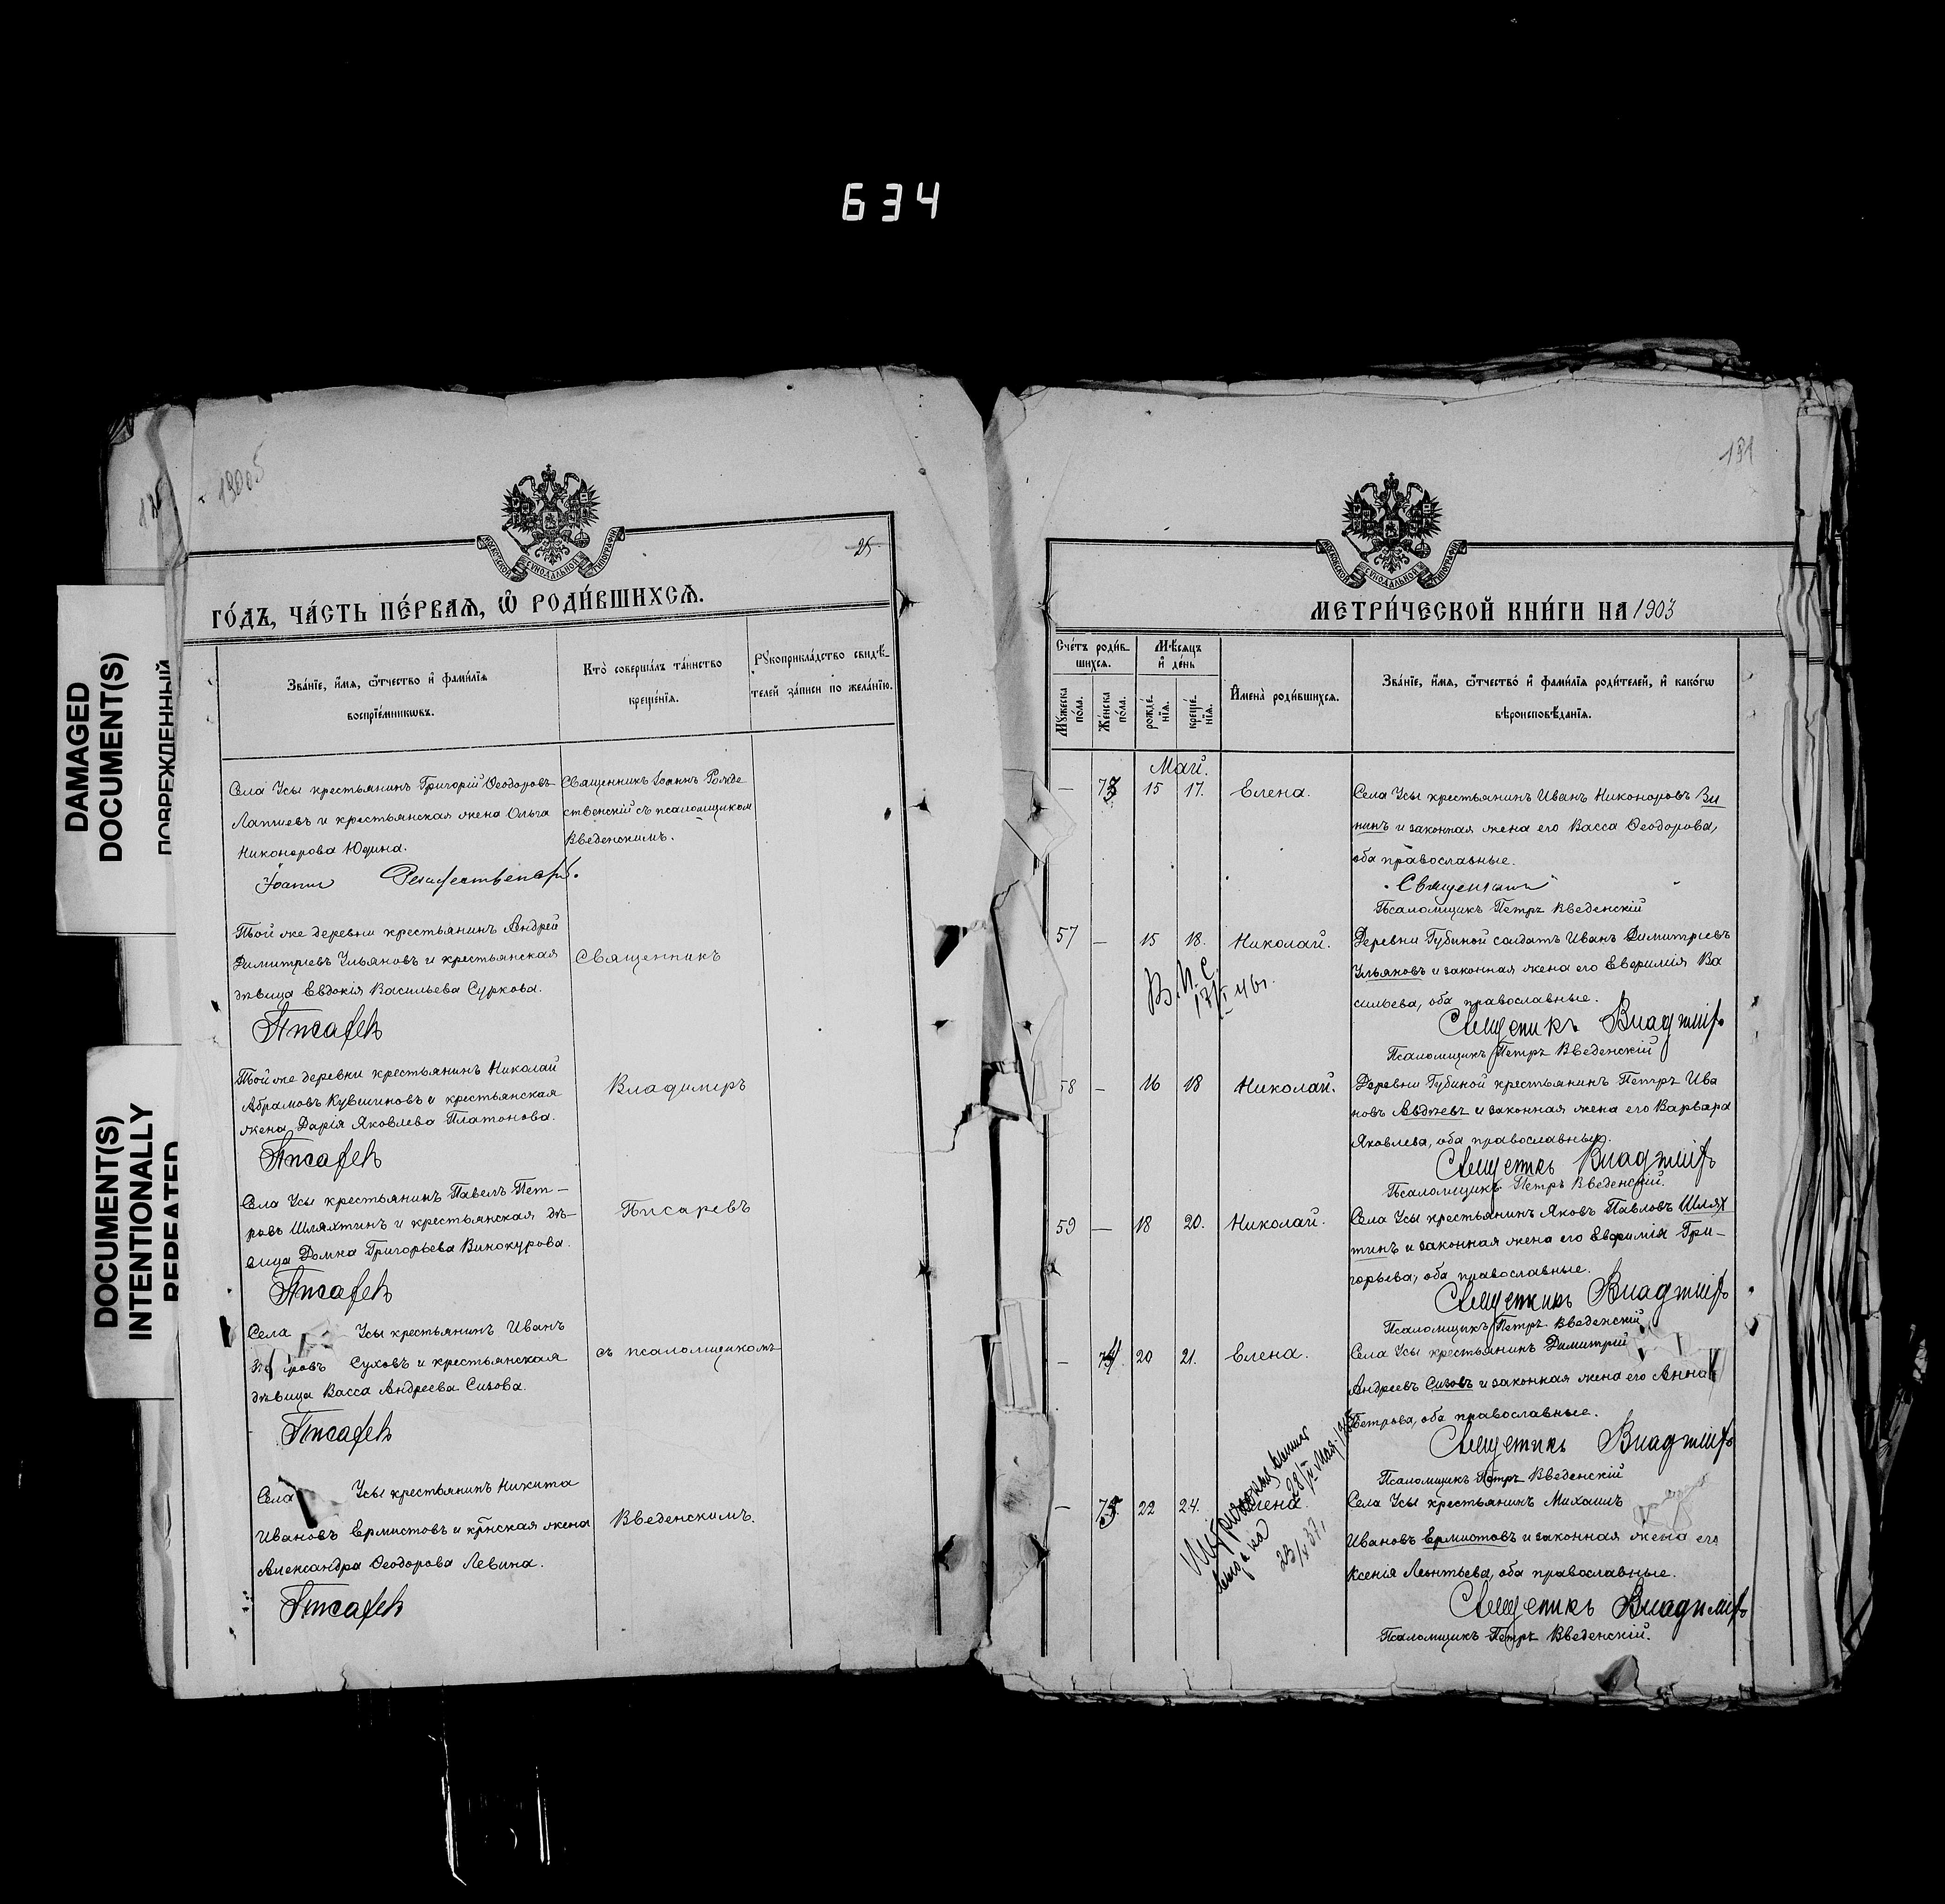 634
DAMAGED
DOCUMENT(S)
ПОВРЕЖДЕННЫЙ
DOCUMENT(S)
INTENTIONALLY
REPEATED
25
МОСКОВСКОЙ СѴНОДАЛЬНОЙ ТИПОГРАФІИ
ГО́ДЪ, ЧА́СТЬ ПЕ́РВАѦ, Ѡ҆ РОДИ́ВШИХСѦ.
Зва́нїе, и҆́мѧ, ѻ҆́тчество и҆ фами́лїѧ
воспрїе́мникѡвъ.
Кто̀ соверша́лъ та́инство
креще́нїѧ.
Рꙋкоприкла́дство свидѣ́-
телей за́писи по жела́нїю.
Села Усы крестьянинъ Григорій Ѳеодоровъ
Лапшевъ и крестьянская жена Ольга
Никонорова Юдина.
Священникъ Іоаннъ Рожде
ственскій съ псаломщиком
Введенскимъ.
Той же деревни крестьянинъ Андрей
Димитріевъ Ульяновъ и крестьянская
дѣвица Евдокія Васильева Суркова.
Священникъ
Писарев
Той же деревни крестьянинъ Николай
Абрамовъ Кувшиновъ и крестьянская
жена Дарія Яковлева Платонова.
Владимиръ
Писарев
Села Усы крестьянинъ Павелъ Пет-
ровъ Шляхтинъ и крестьянская дѣ-
вица Домна Григорьева Винокурова.
Писаревъ
Писарев
Села Усы крестьянинъ Иванъ
Суховъ и крестьянская
дѣвица Васса Андреева Сизова.
съ псаломщикомъ
Писарев
Села Усы крестьянинъ Никита
Ивановъ Ермистовъ и крнская жена
Александра Ѳеодорова Левина.
Введенскимъ.
Писарев
191
МОСКОВСКОЙ СѴНОДАЛЬНОЙ ТИПОГРАФІИ
МЕТРИ́ЧЕСКОЙ КНИ́ГИ НА 1903
Сче́тъ роди́в-
шихсѧ.
Мꙋ́жеска
по́ла.
Же́нска
по́ла.
Мѣ́сѧцъ
и҆ де́нь
рожде́-
нїѧ.
креще́-
нїѧ.
И҆мена̀ роди́вшихсѧ.
Зва́нїе, и҆́мѧ, ѻ҆́тчество и҆ фами́лїѧ роди́телей, и҆ како́гѡ
вѣроисповѣ́данїѧ.
Май.
— 73 15 17. Елена. Села Усы крестьянинъ Иванъ Никоноровъ Зи
нинъ и законная жена его Васса Ѳеодорова,
оба православные.
Священник
Псаломщикъ Петръ Введенскій
57 — 15 18. Николай. Деревни Губиной солдатъ Иванъ Димитріевъ
Ульяновъ и законная жена его Евфимія Ва
сильева, оба православные.
Священникъ Владимір
Псаломщикъ Петръ Введенскій
58 — 16 18 Николай. Деревни Губиной крестьянинъ Петръ Ива
новъ Авдѣевъ и законная жена его Варвара
Яковлева, оба православные.
Священникъ Владимір
Псаломщикъ Петръ Введенскій.
59 — 18 20. Николай. Села Усы крестьянинъ Яковъ Павловъ Шлях
тинъ и законная жена его Евфимія Гри-
горьева, оба православные.
Священникъ Владимір
Псаломщикъ Петръ Введенскій
— 74. 20 21. Елена. Села Усы крестьянинъ Димитрій
Андреевъ Сизовъ и законная жена его Анна
Петрова, оба православные.
Священникъ Владимір
Псаломщикъ Петръ Введенскій
— 75. 22 24. Елена. Села Усы крестьянинъ Михаилъ
Ивановъ Ермистовъ и законная жена его
Ксенія Леонтьева, оба православные.
Священникъ Владимір
Псаломщикъ Петръ Введенскій.